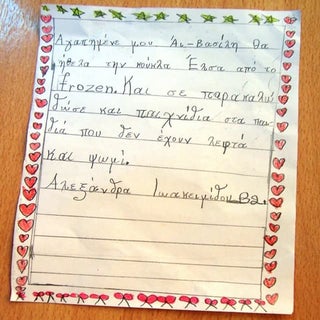 Αγαπημένε μου Άι-Βασίλη θα
ήθελα την κούκλα Έλσα από το
frozen. Και σε παρακαλώ
δώσε και παιχνίδια στα παι
διά που δεν έχουν λεφτά
και ψωμί.
Αλεξάνδρα Ιωακειμίδου Β2.